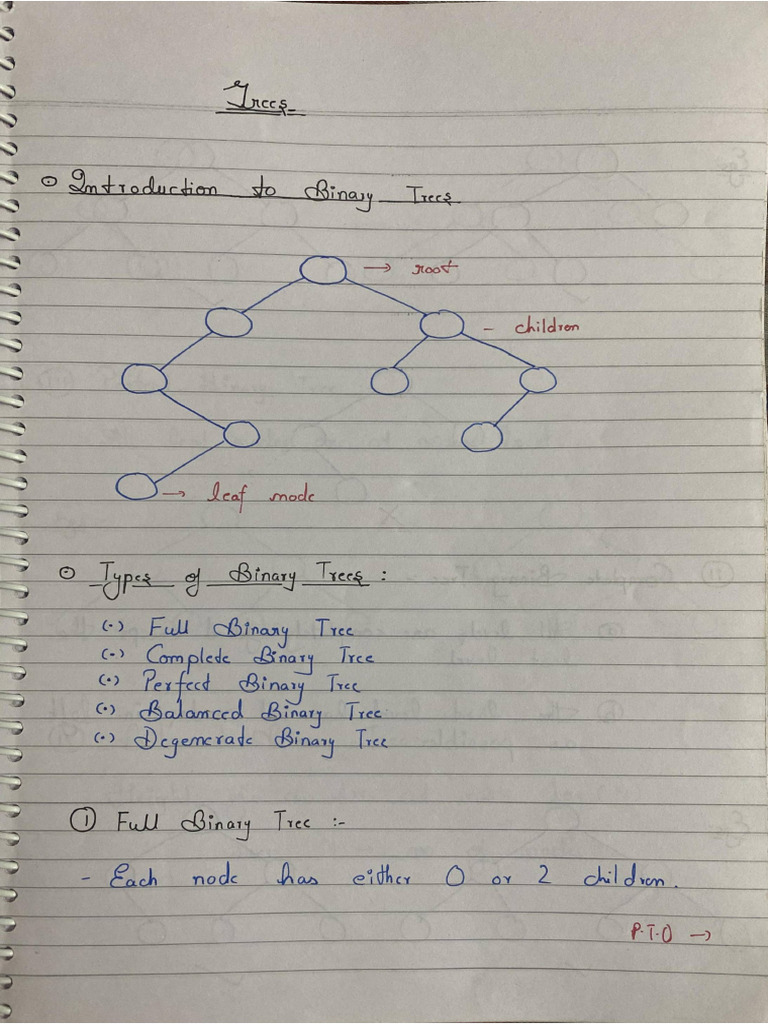 Trees
⊙ Introduction to Binary Trees
→ root
- children
→ leaf node
⊙ Types of Binary Trees :
(•) Full Binary Tree
(•) Complete Binary Tree
(•) Perfect Binary Tree
(•) Balanced Binary Tree
(•) Degenerate Binary Tree
① Full Binary Tree :-
- Each node has either 0 or 2 children.
P.T.O →